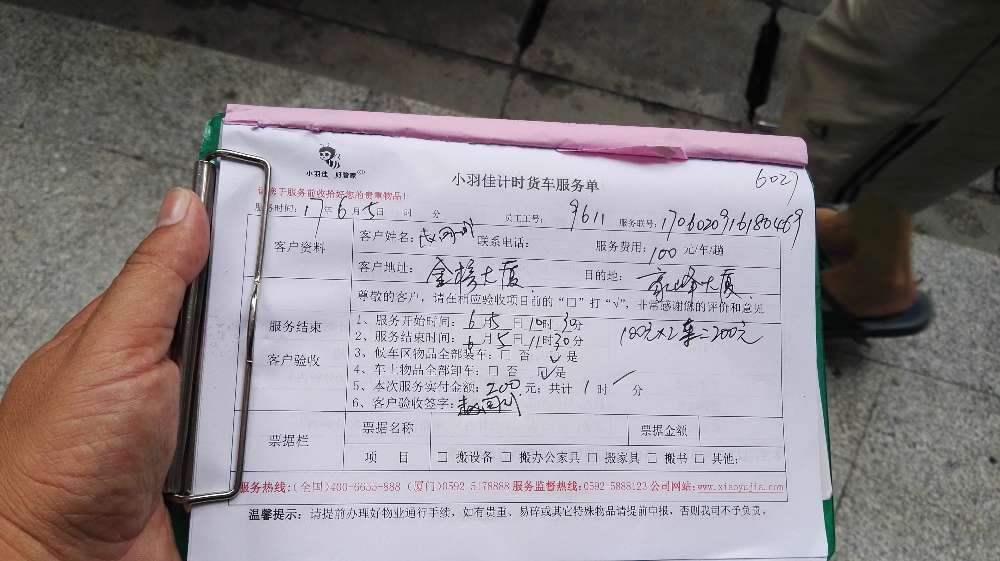 小羽佳 好管家
小羽佳计时货车服务单
6027
请您于服务前收拾好您的贵重物品！
服务时间：17年6月5日 时 分 员工工号：9611 服务联号：
客户资料
客户姓名： 联系电话： 服务费用：100元/车/趟
客户地址：金榜大厦 目的地：大厦
尊敬的客户，请在相应验收项目前的“□”打“√”，非常感谢您的评价和意见
服务结束
客户验收
1、服务开始时间：6月5日10时30分
100元×2车=200元
2、服务结束时间：6月5日11时30分
3、候车区物品全部装车：□ 否 ☑ 是
4、车上物品全部卸车：□ 否 ☑ 是
5、本次服务实付金额：200元；共计1时 分
6、客户验收签字：
票据栏
票据名称 票据金额
项 目 □ 搬设备 □ 搬办公家具 □ 搬家具 □ 搬书 □ 其他：
服务热线：(全国)400-6655-888 (厦门)0592-5178888 服务监督热线：0592-5888123 公司网站：www.xiaoyujia.com
温馨提示：请提前办理好物业通行手续，如有贵重、易碎或其它特殊物品请提前申报，否则我司不予负责。